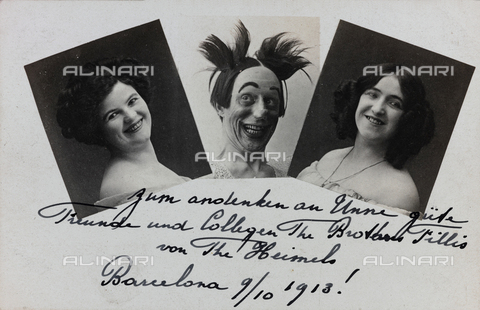 ALINARI
ALINARI
ALINARI
zum andenken an Unne güte
Freunde und Collegen The Brothers Tillis
von The Heimels
ALINARI
ALINARI
Barcelona 9/10 1913!